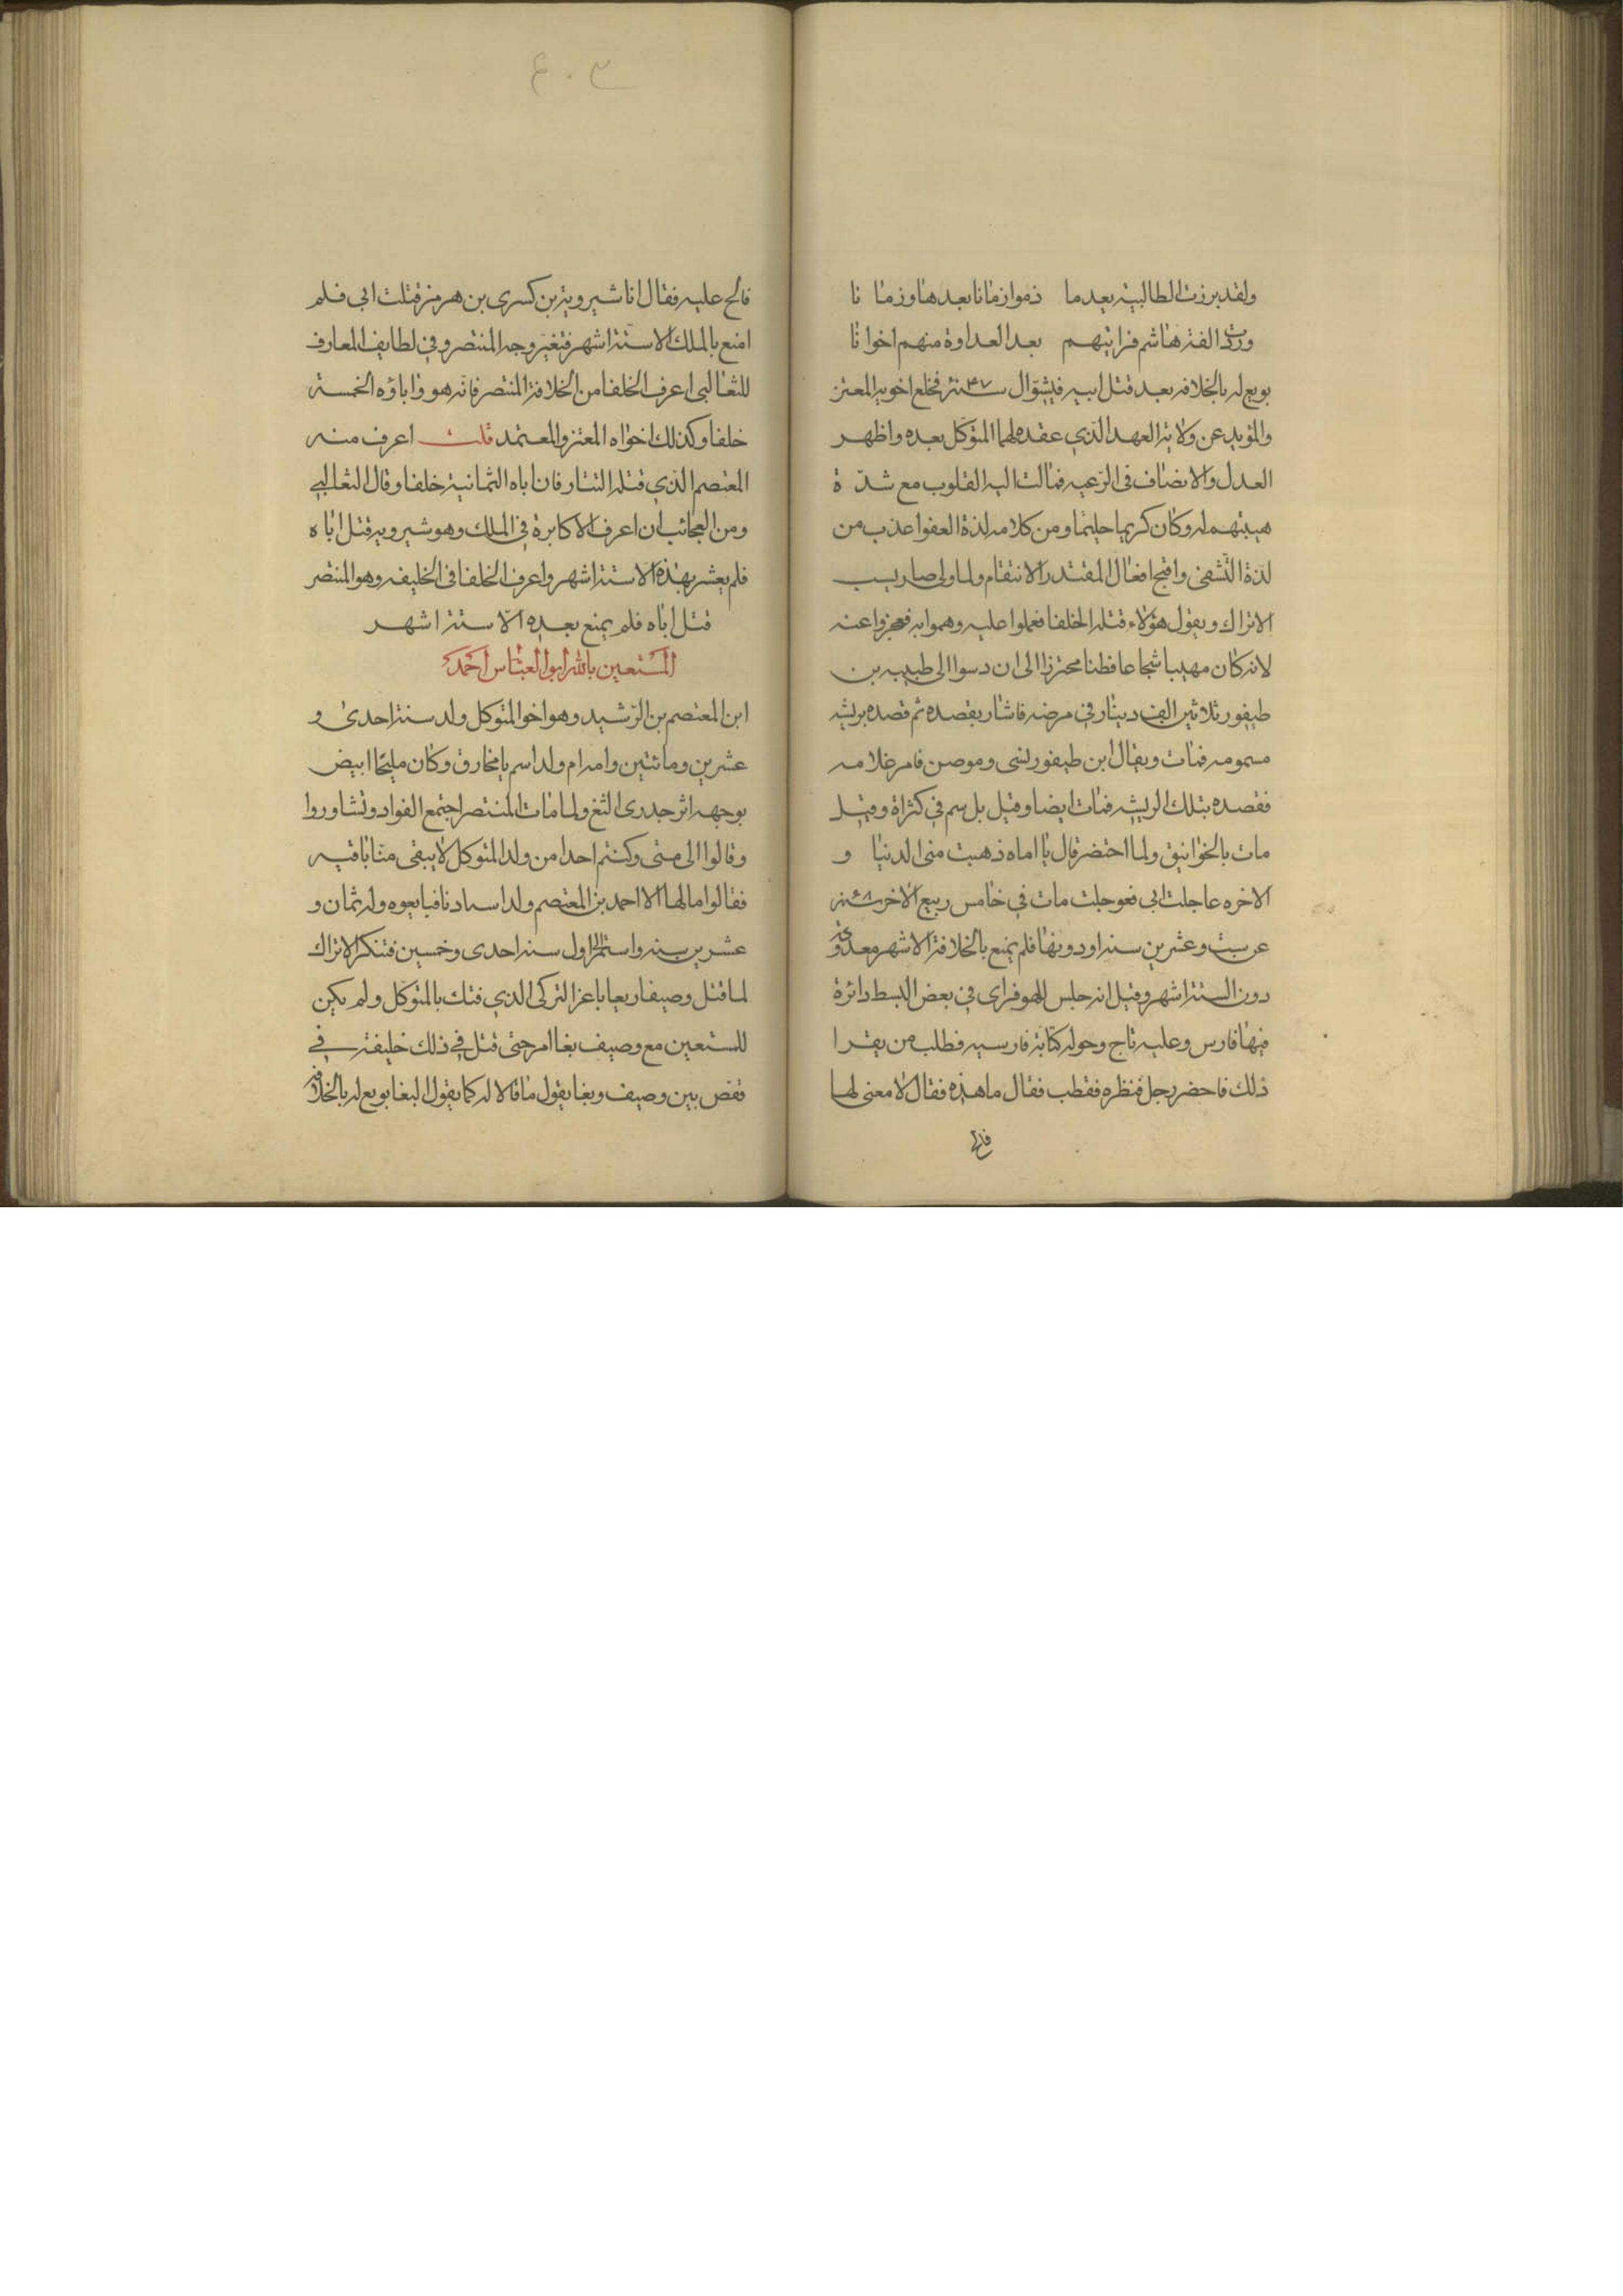 ولقد برزت الطالبية بعدما ذموا زمانا بعدها وزمانا
ورددت الفة هاشم فرايتهم بعد العداوة منهم اخوانا
بويع له بالخلافه بعد قتل ابيه في شوال سنة ٢٤٧ فخلع اخويه المعتز
والمؤيد عن ولاية العهد الذي عقده لهما المتوكل بعده واظهر
العدل والانصاف في الرعيه فمالت اليه القلوب مع شدة
هيبتهم له وكان كريما حليما ومن كلامه لذة العفو اعذب من
لذة التشفي واقبح افعال المقتدر الانتقام ولما ولى صار يسب
الاتراك ويقول هؤلاء قتلة الخلفا فعملوا عليه وهموا به فعجزوا عنه
لانه كان مهيبا شجاعا فطنا محترزا الى ان دسوا الى طبيبه بن
طيفور ثلاثين الف دينار في مرضه فاشار بفصده ثم فصده بريشه
مسمومه فمات ويقال ابن طيفور نسى ومرض فامر غلامه
ففصده بتلك الريشه فمات ايضا وقيل بل سم في كثراة وقيل
مات بالخوانيق ولما احتضر قال يا اماه ذهبت منى الدنيا و
الاخره عاجلت ابي فعوجلت مات في خامس ربيع الاخر سنة ٤٨
عن ست وعشرين سنه او دونها فلم يمنع بالخلافة الا شهر معدودة
دون الستة اشهر وقيل انه جلس للهو فراى في بعض البسط دائرة
فيها فارس وعليه تاج وحوله كتابة فارسيه فطلب من يقرا
ذلك فاحضر رجل فنظره فقطب فقال ما هذه فقال لا معنى لها
فالح
٤٠٣
فالح عليه فقال انا شيرويه بن كسرى بن هرمز قتلت ابي فلم
امنع بالملك الا ستة اشهر فتغير وجه المنتصر وفي لطايف المعارف
للثعالبي اعرف الخلفا من الخلافة المنتصر فانه هو واباؤه الخمسة
خلفا وكذلك اخواه المعتز والمعتمد قلت اعرف منه
المعتصم الذي قتله التتار فان اباه الثمانية خلفا وقال الثعالبي
ومن العجائب ان اعرف الاكابرة في الملك وهو شيرويه قتل اباه
فلم يعش بهذه الا ستة اشهر واعرف الخلفا في الخليفه وهو المنتصر
قتل اباه فلم يمنع بعده الا ستة اشهر
المستعين بالله ابو العباس احمد
ابن المعتصم بن الرشيد وهو اخو المتوكل ولد سنة احدى و
عشرين ومائتين وامه ام ولد اسمها مخارق وكان مليحا ابيض
بوجهه اثر جدرى الثغ ولما مات المنتصر اجتمع القواد وتشاوروا
وقالوا الى متى وكنتم احدا من ولد المتوكل لا يبقى منا باقيه
فقالوا ما لها الا احمد بن المعتصم ولد استادنا فبايعوه وله ثمان و
عشرين سنه واستمر الى اول سنه احدى وخمسين فتنكر الاتراك
لما قتل وصيفا وبغا باعز التركى الذي فتك بالمتوكل ولم يكن
للمستعين مع وصيف بغا امر حتى قيل في ذلك خليفة في
قفص بين وصيف وبغا يقول ما قالا له كما يقول الببغا بويع له بالخلافه